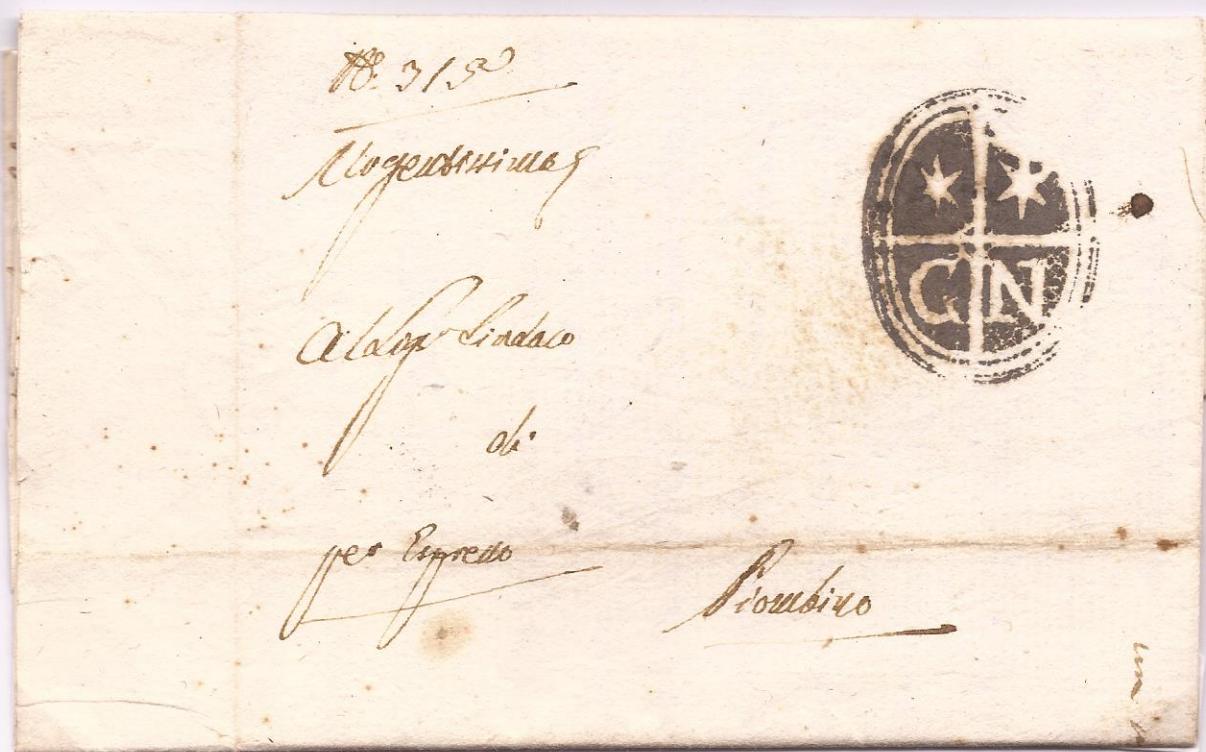 N. 315
Urgentissima
Al Sigr. Sindaco
di
per Espresso
Piombino
G N